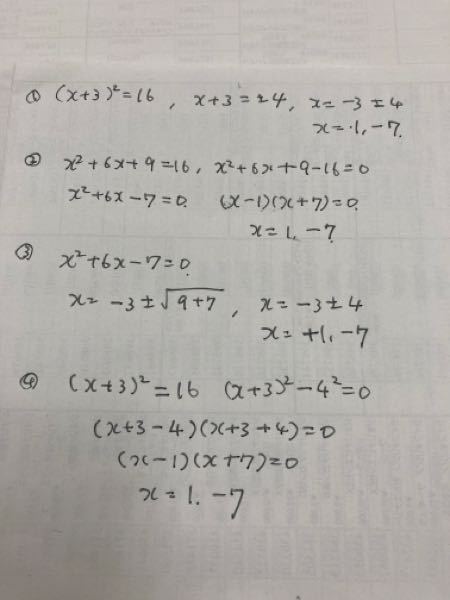 ① (x+3)²=16 , x+3=±4, x=-3±4
x=1,-7
② x²+6x+9=16, x²+6x+9-16=0
x²+6x-7=0. (x-1)(x+7)=0.
x=1. -7
③ x²+6x-7=0.
x= -3±√9+7 , x=-3±4
x=+1.-7
④ (x+3)²=16 (x+3)²-4²=0
(x+3-4)(x+3+4)=0
(x-1)(x+7)=0
x=1. -7